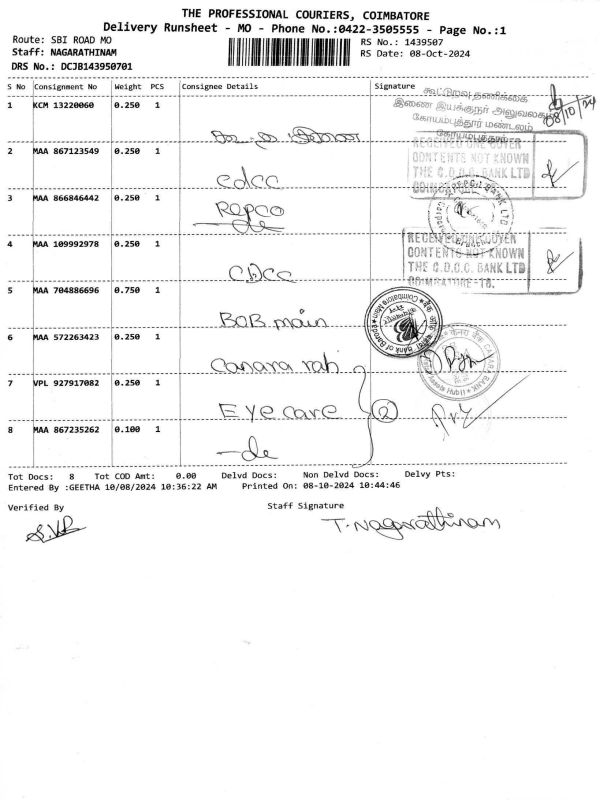 THE PROFESSIONAL COURIERS, COIMBATORE
Delivery Runsheet - MO - Phone No.:0422-3505555 - Page No.:1
Route: SBI ROAD MO
RS No.: 1439507
Staff: NAGARATHINAM
RS Date: 08-Oct-2024
DRS No.: DCJB143950701
S No Consignment No Weight PCS Consignee Details Signature
கூட்டுறவு தணிக்கை
இணை இயக்குநர் அலுவலகம்
கோயம்புத்தூர் மண்டலம்
கோயம்புத்தூர்
08/10/24
1 KCM 13220060 0.250 1
RECEIVED ONE COVER
CONTENTS NOT KNOWN
THE C.D.C.C. BANK LTD
COIMBATORE
2 MAA 867123549 0.250 1 CDCC
3 MAA 866846442 0.250 1 REPCO
REPCO BANK LTD
4 MAA 109992978 0.250 1 CDCC
RECEIVED ONE COVER
CONTENTS NOT KNOWN
THE C.D.C.C. BANK LTD
COIMBATORE-18.
5 MAA 704886696 0.750 1 BOB main
Bank of Baroda
Coimbatore Main
6 MAA 572263423 0.250 1 Canara rah
CANARA BANK
7 VPL 927917082 0.250 1 Eye care
2
8 MAA 867235262 0.100 1 -do
Tot Docs: 8 Tot COD Amt: 0.00 Delvd Docs: Non Delvd Docs: Delvy Pts:
Entered By :GEETHA 10/08/2024 10:36:22 AM Printed On: 08-10-2024 10:44:46
Verified By
Staff Signature
T. Nagarathinam